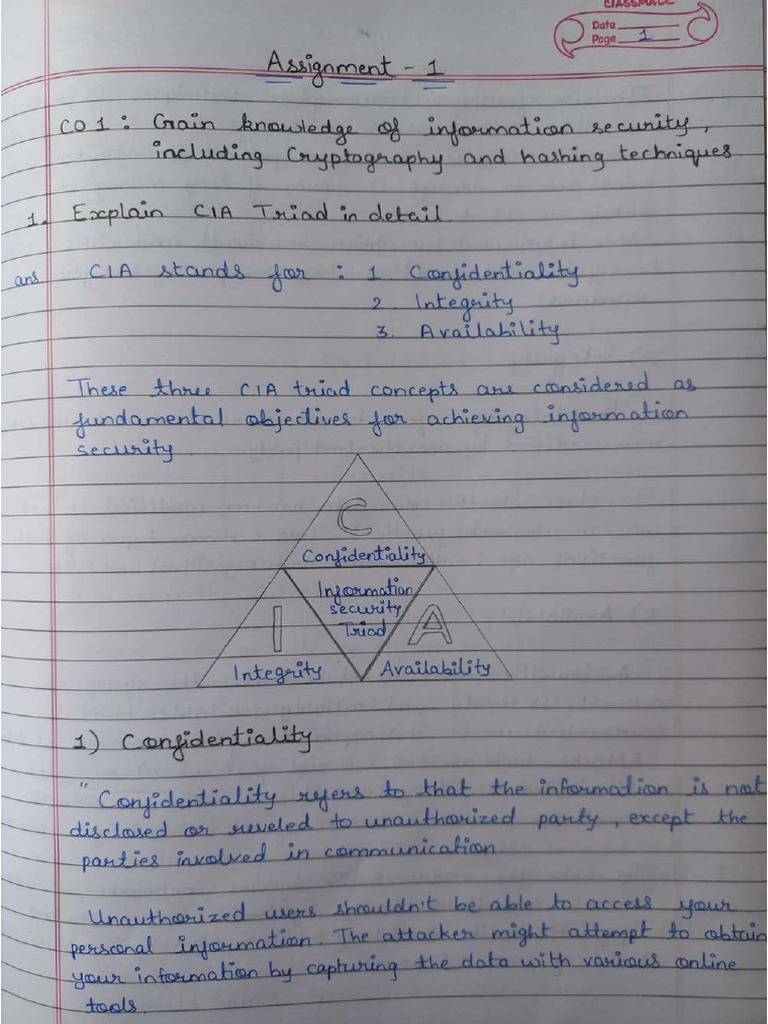 CLASSMATE
Date
Page 1
Assignment - 1
CO1 : Gain knowledge of information security,
including Cryptography and hashing techniques
1. Explain CIA Triad in detail.
ans. CIA stands for : 1 Confidentiality
2. Integrity
3. Availability
These three CIA triad concepts are considered as
fundamental objectives for achieving information
security.
C
Confidentiality
Information
security
Triad
I
A
Integrity
Availability
1) Confidentiality
" Confidentiality refers to that the information is not
disclosed or reveled to unauthorized party, except the
parties involved in communication
Unauthorized users shouldn't be able to access your
personal information. The attacker might attempt to obtain
your information by capturing the data with various online
tools.